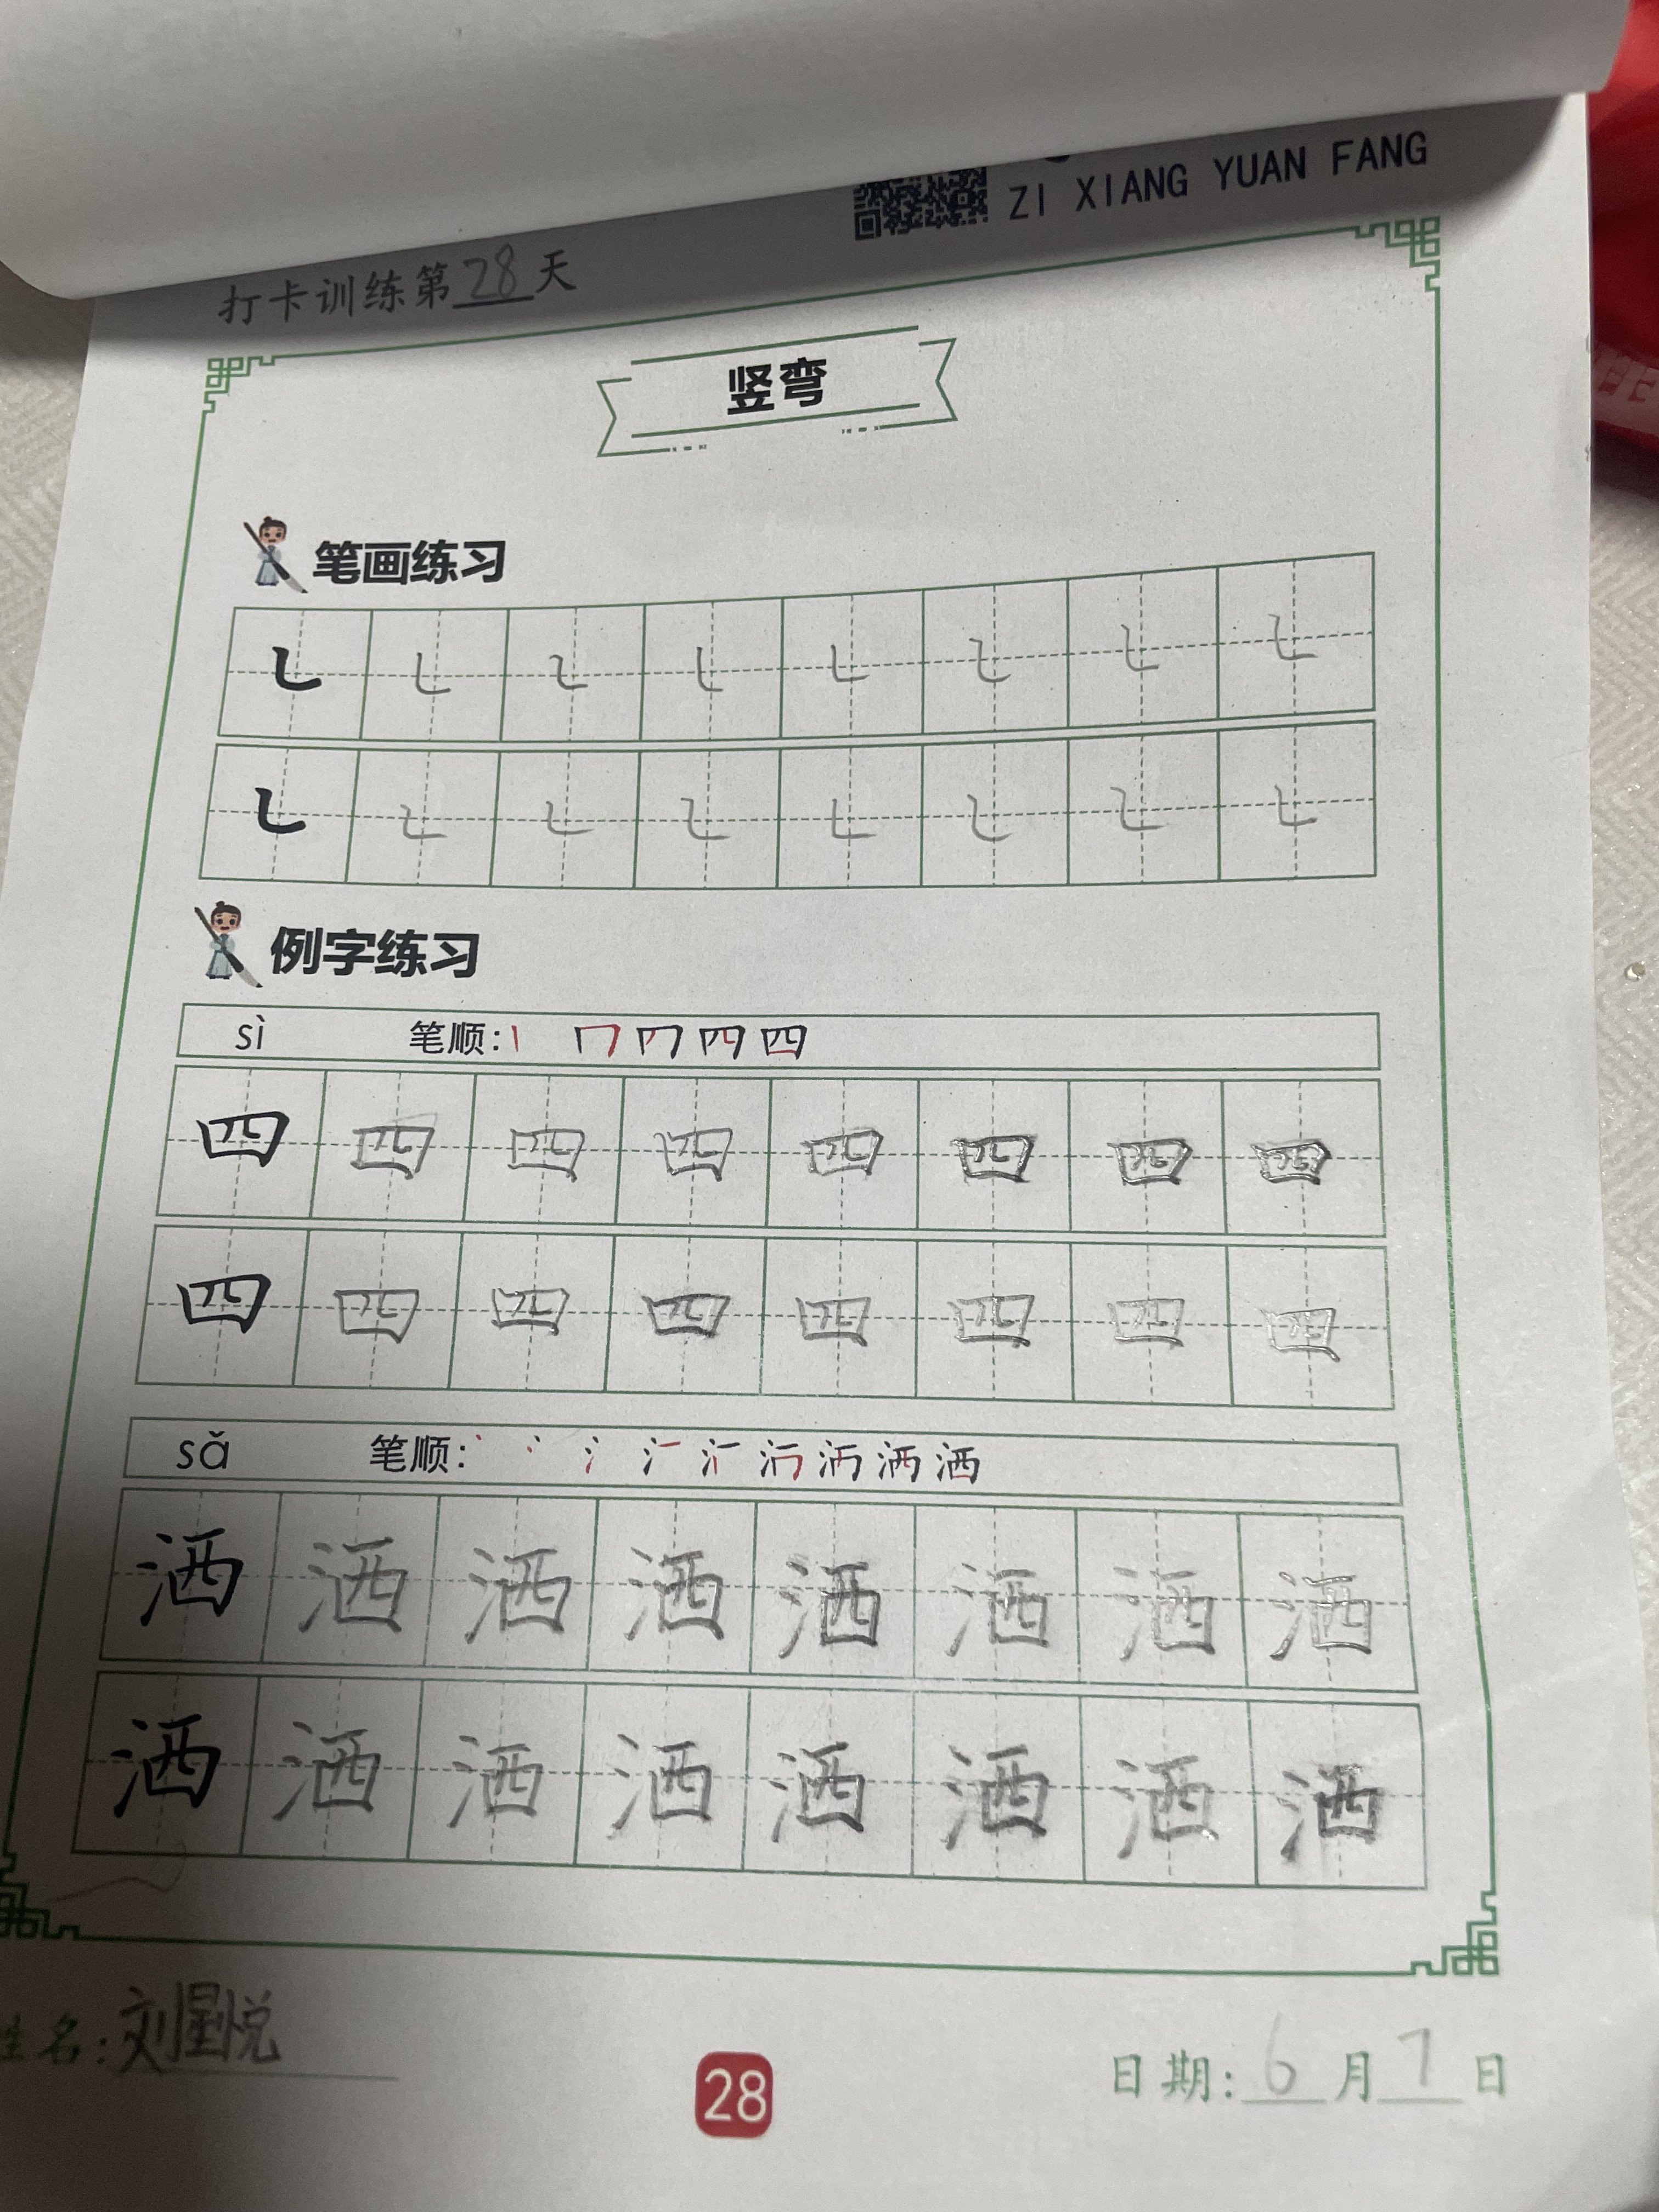 ZI XIANG YUAN FANG
打卡训练第28天
竖弯
笔画练习
㇄ ㇄ ㇄ ㇄ ㇄ ㇄ ㇄ ㇄
㇄ ㇄ ㇄ ㇄ ㇄ ㇄ ㇄ ㇄
例字练习
sì 笔顺: 四
四 四 四 四 四 四 四 四
四 四 四 四 四 四 四 四
sǎ 笔顺: 洒
洒 洒 洒 洒 洒 洒 洒 洒
洒 洒 洒 洒 洒 洒 洒 洒
姓名:刘星悦
28
日期:6月7日